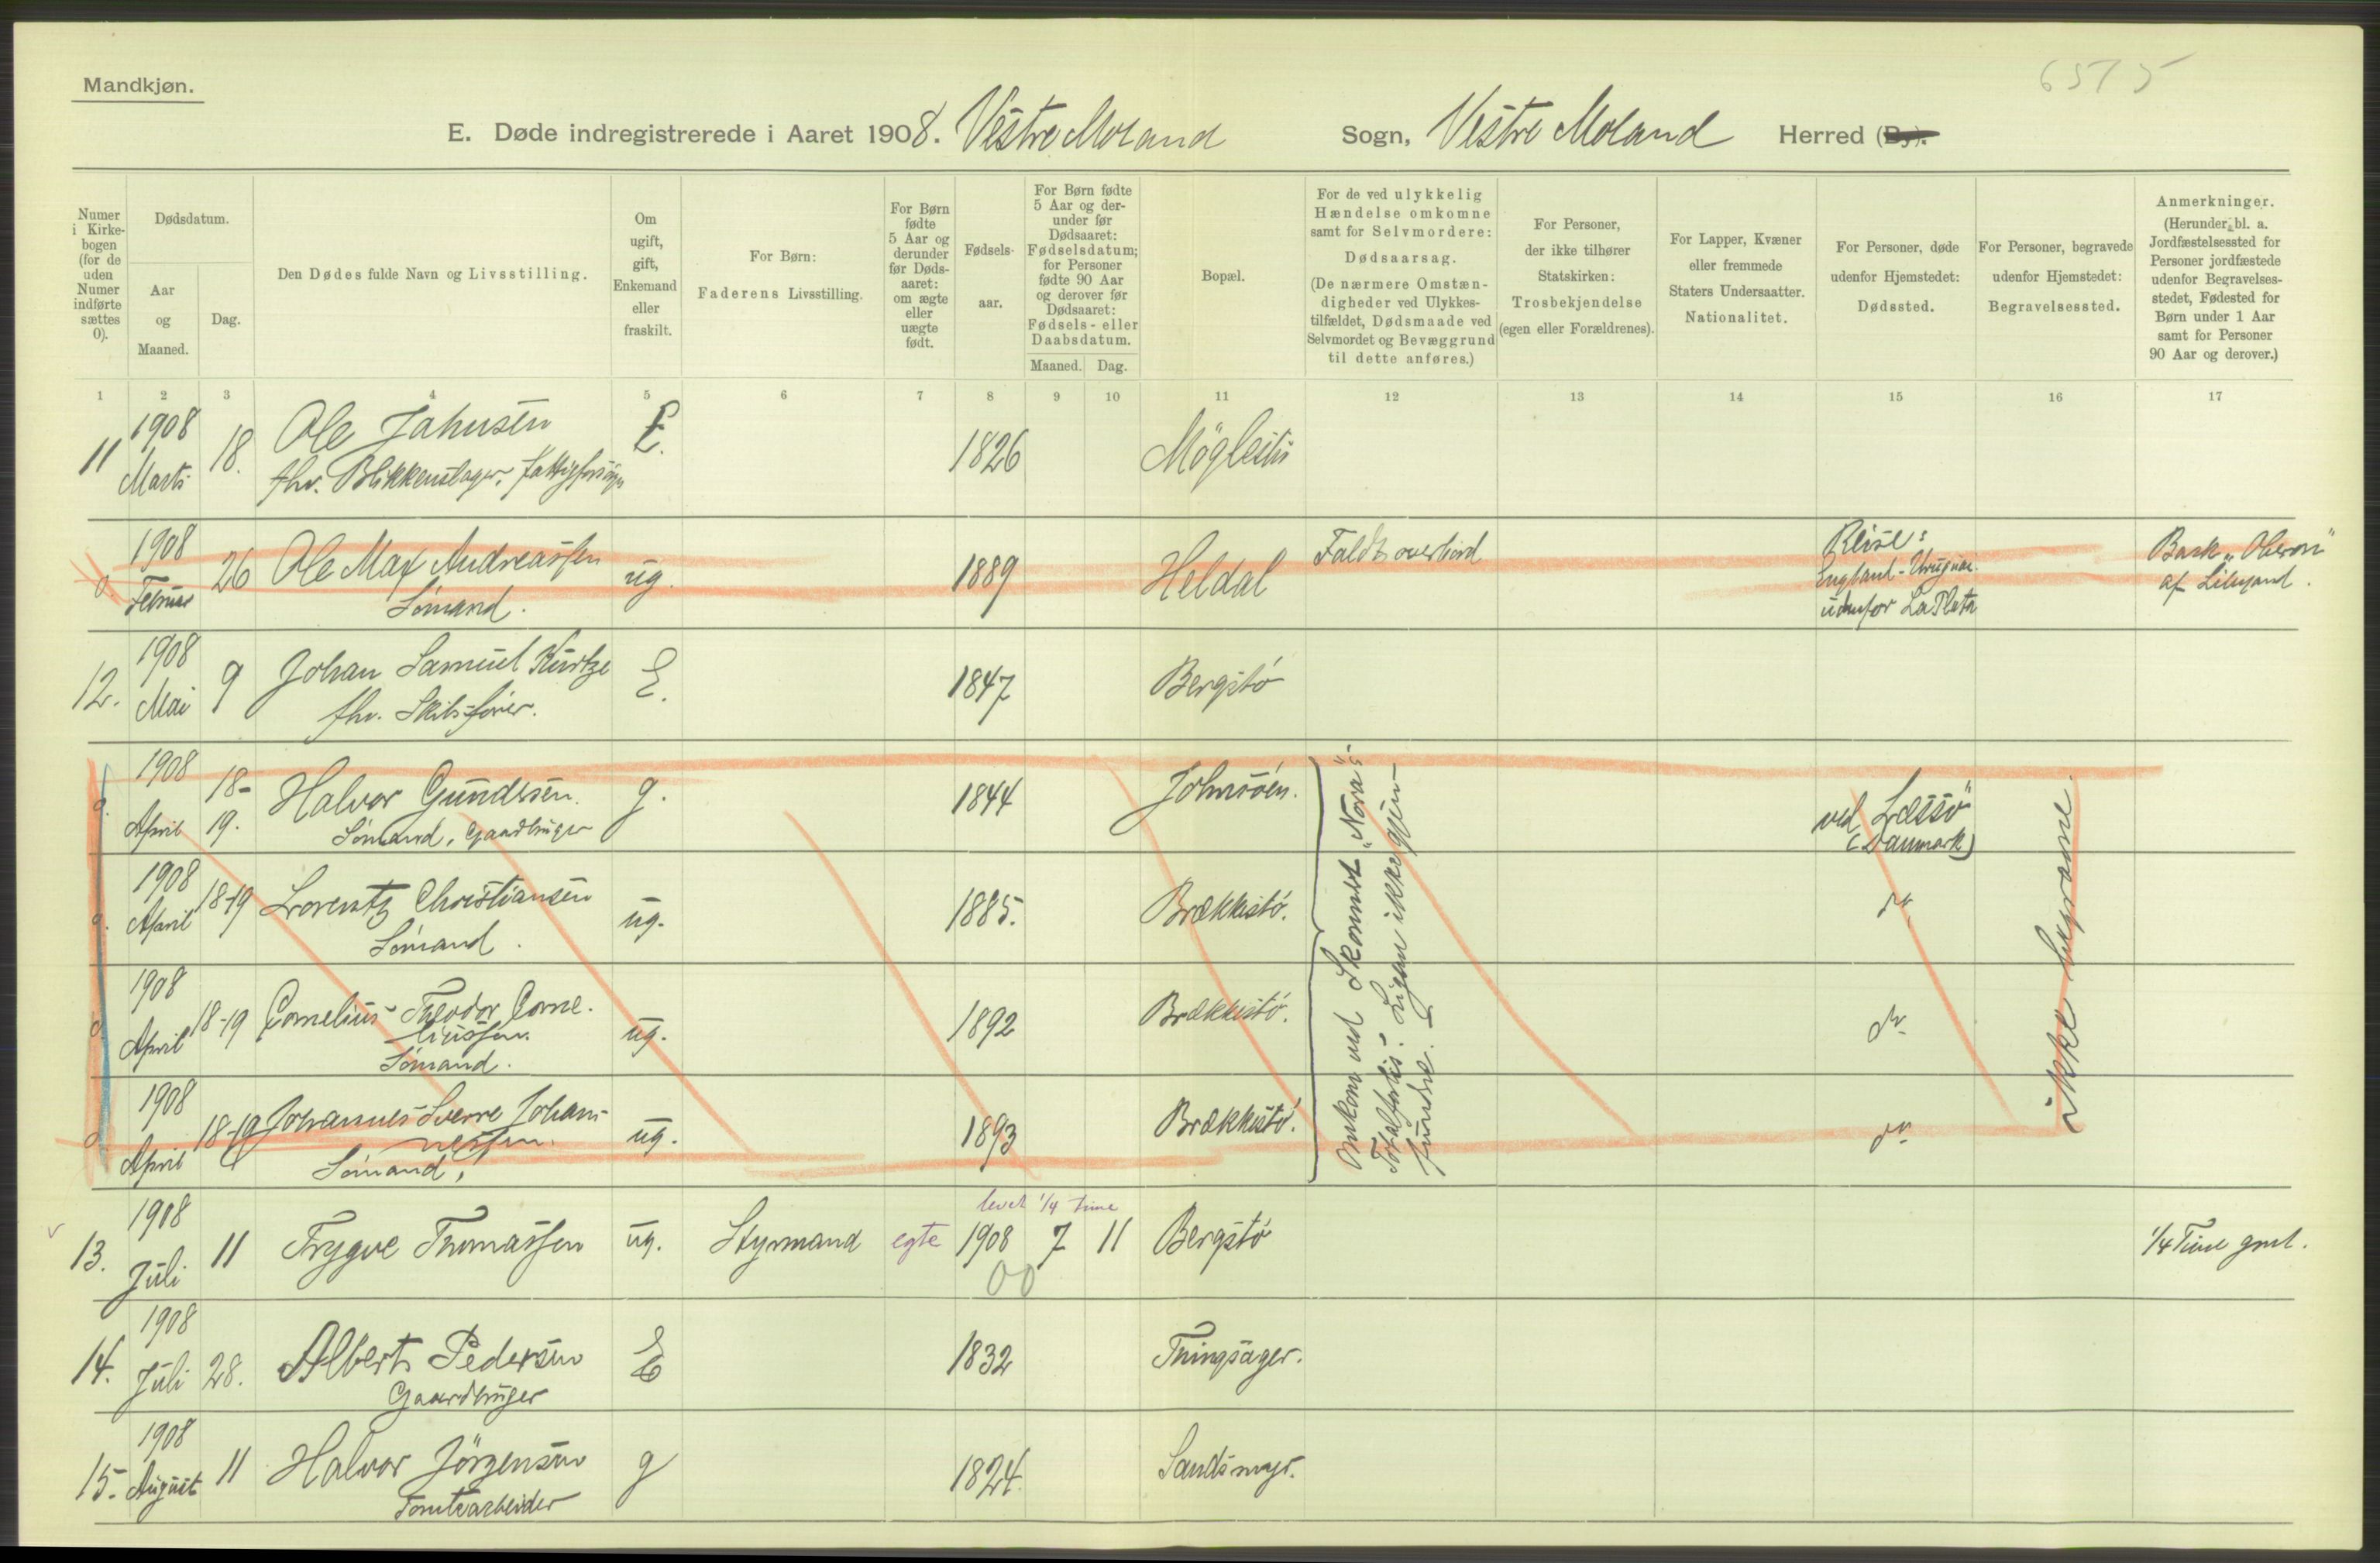 6515
Mandkjøn.
E. Døde indregistrerede i Aaret 1908. Vestre Moland Sogn, Vestre Moland Herred
Numer i Kirkebogen (for de uden Numer indførte sættes 0).
Dødsdatum.
Aar og Maaned.
Dag.
Den Dødes fulde Navn og Livsstilling.
Om ugift, gift, Enkemand eller fraskilt.
For Børn:
Faderens Livsstilling.
For Børn fødte 5 Aar og derunder før Dødsaaret: om ægte eller uægte født.
Fødselsaar.
For Børn fødte 5 Aar og derunder før Dødsaaret: Fødselsdatum; for Personer fødte 90 Aar og derover før Dødsaaret: Fødsels- eller Daabsdatum.
Maaned. Dag.
Bopæl.
For de ved ulykkelig Hændelse omkomne samt for Selvmordere:
Dødsaarsag.
(De nærmere Omstændigheder ved Ulykkestilfældet, Dødsmaade ved Selvmordet og Bevæggrund til dette anføres.)
For Personer, der ikke tilhører Statskirken:
Trosbekjendelse
(egen eller Forældrenes).
For Lapper, Kvæner eller fremmede Staters Undersaatter.
Nationalitet.
For Personer, døde udenfor Hjemstedet:
Dødssted.
For Personer, begravede udenfor Hjemstedet:
Begravelsessted.
Anmerkninger.
(Herunder bl. a. Jordfæstelsessted for Personer jordfæstede udenfor Begravelsesstedet, Fødested for Børn under 1 Aar samt for Personer 90 Aar og derover.)
1 2 3 4 5 6 7 8 9 10 11 12 13 14 15 16 17
11 1908 Marts 18. Ole Jahnsen E. 1826
fhv. Blikkenslager,
0. 1908 Februar 26 Ole Max Andreassen ug. 1889 Heldal Faldt overbord Reise: England - Uruguai. udenfor La Plata Bark „Oberon" af Lillesand.
Sømand.
12. 1908 Mai 9 Johan Samuel Kurtze E. 1847 Bergstø
fhv. Skibsfører.
0. 1908 April 18-19. Halvor Gundersen. g. 1844 Johnsøen. ved „Læssø" (Danmark)
Sømand, Gaardbruger
0. 1908 April 18-19 Lorentz Christiansen ug. 1885. Brækkestø. do
Sømand.
0. 1908 April 18-19 Cornelius Theodor Corneliussen. ug. 1892 Brækkestø. do
Sømand.
0. 1908 April 18-19 Johannes Sverre Johannessen. ug. 1893 Brækkestø. do
Sømand,
Omkom ved Skonnert „Nora"s
Totalforlis. Ligene ikke gjen-
fundne.
ikke begravne.
levet 1/4 Time
13. 1908 Juli 11 Trygve Thomassen ug. Styrmand egte 1908 7 11 Bergstø 1/4 Time gml.
00
14. 1908 Juli 28. Albert Pedersen E 1832 Tingsager.
Gaardbruger
15. 1908 August 11 Halvor Jörgensen g 1824. Sandsmyr.
Tomtearbeider